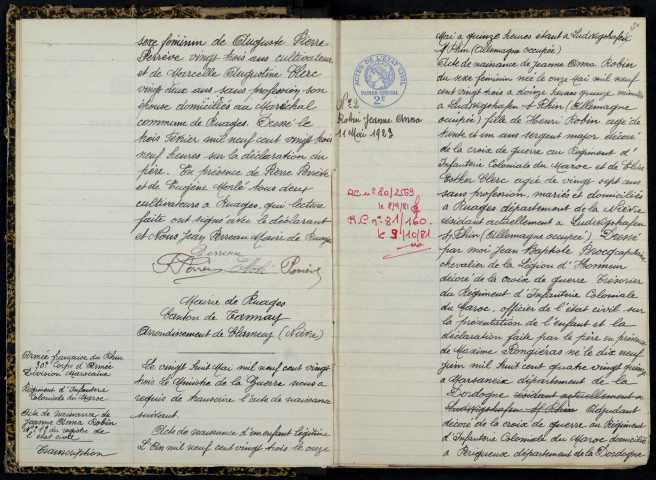 sexe féminin de Auguste Pierre
Perrève vingt trois ans cultivateur
et de Marcelle Augustine Clerc
vingt deux ans sans profession, son
épouse domiciliés au Maréchal
commune de Ruages. Dressé le
trois Février mil neuf cent vingt trois
neuf heures sur la déclaration du
père. En présence de Pierre Perrève
et de Eugène Morlé tous deux
cultivateurs à Ruages, qui lecture
faite ont signé avec le déclarant
et Nous, Jean Perreau Maire de Ruages
Perreau
Perrève
Mairie de Ruages
Canton de Tannay
Arrondissement de Clamecy (Nièvre)
Armée française du Rhin
30e Corps d'Armée
Division Marocaine
Régiment d'Infanterie
Coloniale du Maroc
Acte de naissance de
Jeanne Anna Robin
N° 19 du registre de
état civil
Transcription
Le vingt huit Mai mil neuf cent vingt
trois le Ministre de la Guerre nous a
requis de transcrire l'acte de naissance
suivant.
Acte de naissance d'un enfant légitime
L'An mil neuf cent vingt trois le onze
Mai à quinze heures étant à Ludwigshafen
s/ Rhin (Allemagne occupée)
Acte de naissance de Jeanne Anna Robin
du sexe féminin née le onze Mai mil neuf
cent vingt trois à douze heures quinze minutes
à Ludwigshafen s/ Rhin (Allemagne
occupée) fille de Henri Robin agé de
trente et un ans sergent major décoré
de la croix de guerre au Régiment d'
Infanterie Coloniale du Maroc et de Claire
Esther Clerc agée de vingt sept ans
sans profession, mariés et domiciliés
à Ruages département de la Nièvre
résidant actuellement à Ludwigshafen
s/ Rhin (Allemagne occupée) Dressé
par moi Jean Baptiste Brocq capitaine
chevalier de la Légion d'Honneur
décoré de la croix de guerre Trésorier
du Régiment d'Infanterie Coloniale
du Maroc, officier de l'état civil sur
la présentation de l'enfant et la
déclaration faite par le père en présence
de Maxime Rongiéras né le dix neuf
juin mil huit cent quatre vingt quinze
à Marsaneix département de la
Dordogne résidant actuellement à
Ludwigshafen s/ Rhin Adjudant
décoré de la croix de guerre au Régiment
d'Infanterie Coloniale du Maroc domicilié
à Périgueux département de la Dordogne
ACTES DE L'ETAT CIVIL
PAPIER SPECIAL
2F
N° 22
Robin Jeanne Anna
11 Mai 1923
RC n° 80/2559
R.C n° 81/160
le 9/10/81